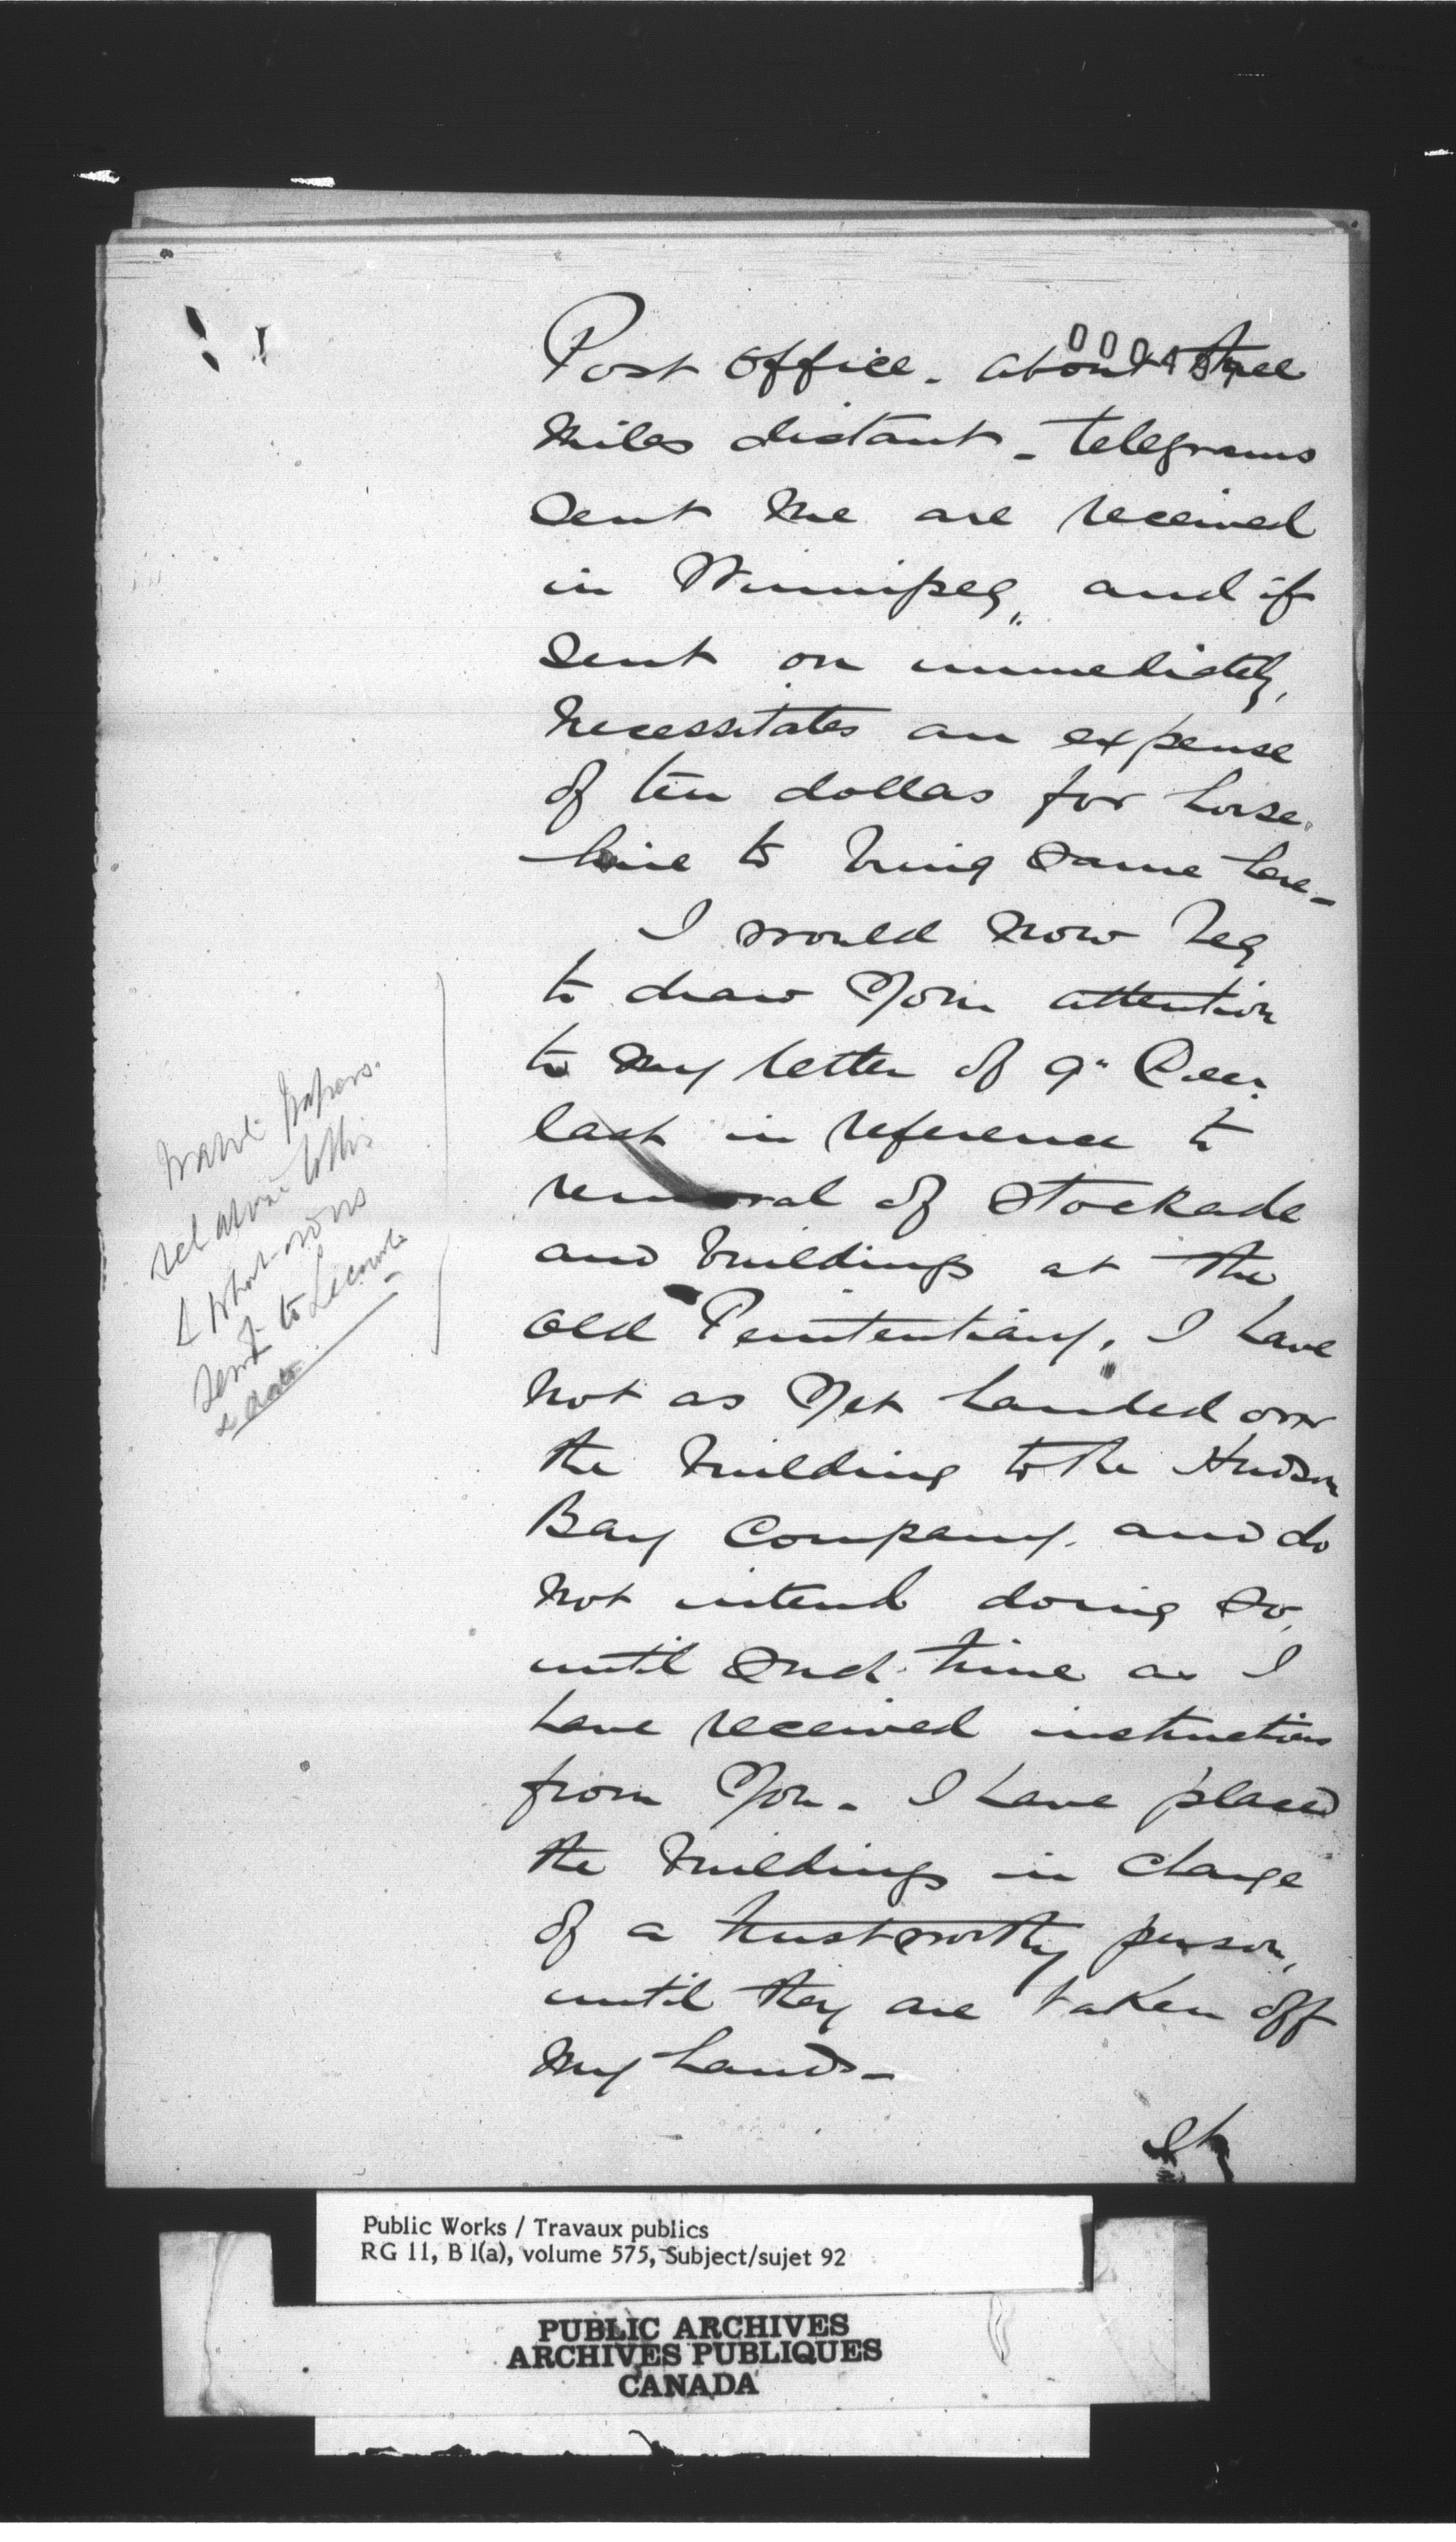 Post Office. about three
miles distant - telegrams
sent me are received
in Winnipeg, and if
sent on immediately,
necessitates an expense
of ten dollars for horse
hire to bring same here -
I would now beg
to draw your attention
to my letter of 9" Decr.
last in reference to
removal of Stockade
and buildings at the
old Penitentiary, I have
not as yet handed over
the building to the Hudson
Bay Company. and do
not intend doing so,
until such time as I
have received instructions
from you. I have placed
the buildings in charge
of a trustworthy person,
until they are taken off
my hands -
papers.
relative to this
& what
sent to Lecourt
Public Works / Travaux publics
RG 11, B 1(a), volume 575, Subject/sujet 92
PUBLIC ARCHIVES
ARCHIVES PUBLIQUES
CANADA